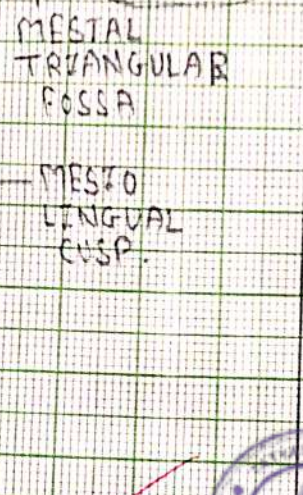 MESIAL
TRIANGULAR
FOSSA
MESIO
LINGUAL
CUSP.